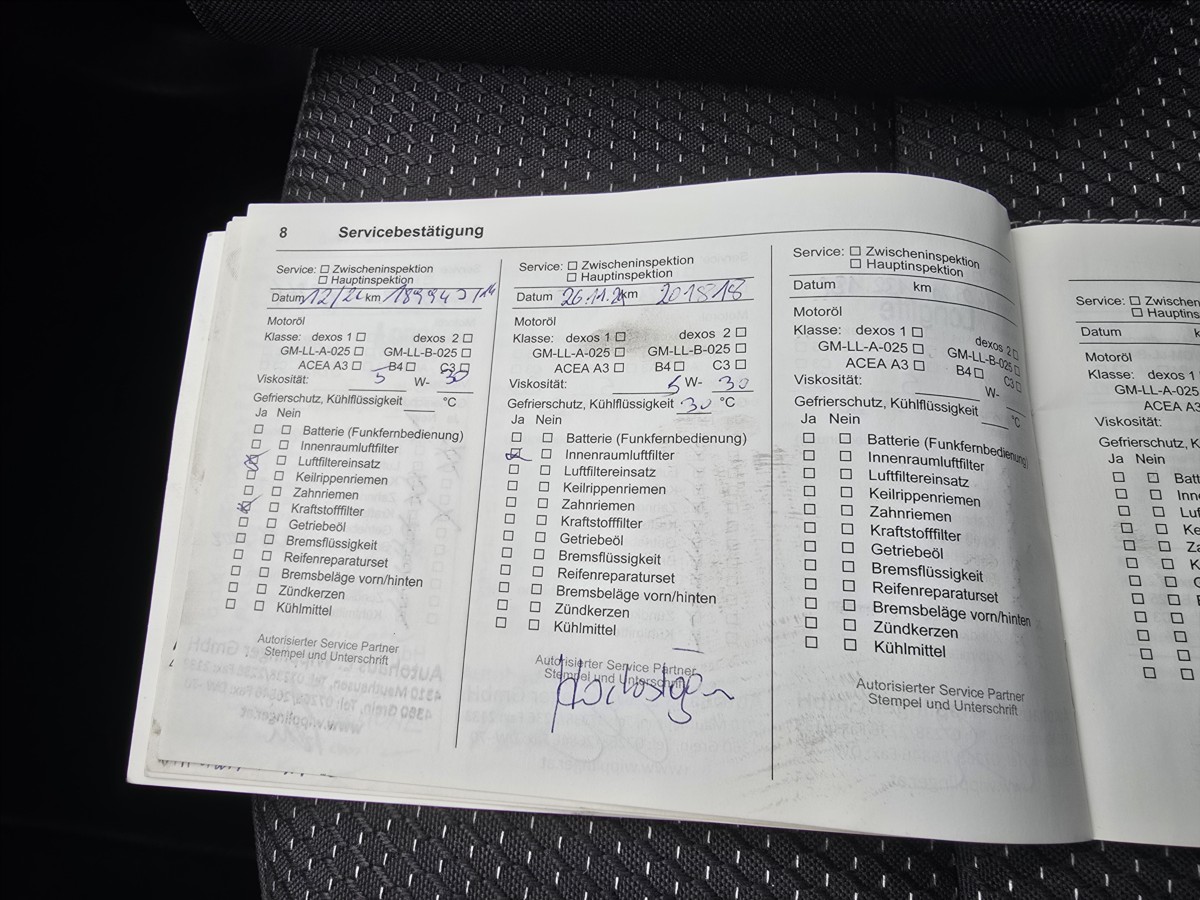 8 Servicebestätigung
Service: ☐ Zwischeninspektion
☐ Hauptinspektion
Datum 12/24 km
Motoröl
Klasse: dexos 1 ☐ dexos 2 ☐
GM-LL-A-025 ☐ GM-LL-B-025 ☐
ACEA A3 ☐ B4 ☐ C3 ☐
Viskosität: 5 W- 30
Gefrierschutz, Kühlflüssigkeit ___ °C
Ja Nein
☐ ☐ Batterie (Funkfernbedienung)
☐ ☐ Innenraumluftfilter
☒ ☐ Luftfiltereinsatz
☐ ☐ Keilrippenriemen
☐ ☐ Zahnriemen
☒ ☐ Kraftstofffilter
☐ ☐ Getriebeöl
☐ ☐ Bremsflüssigkeit
☐ ☐ Reifenreparaturset
☐ ☐ Bremsbeläge vorn/hinten
☐ ☐ Zündkerzen
☐ ☐ Kühlmittel
Autorisierter Service Partner
Stempel und Unterschrift
Service: ☐ Zwischeninspektion
☐ Hauptinspektion
Datum 26.11. km 201518
Motoröl
Klasse: dexos 1 ☐ dexos 2 ☐
GM-LL-A-025 ☐ GM-LL-B-025 ☐
ACEA A3 ☐ B4 ☐ C3 ☐
Viskosität: 5 W- 30
Gefrierschutz, Kühlflüssigkeit 30 °C
Ja Nein
☐ ☐ Batterie (Funkfernbedienung)
☒ ☐ Innenraumluftfilter
☐ ☐ Luftfiltereinsatz
☐ ☐ Keilrippenriemen
☐ ☐ Zahnriemen
☐ ☐ Kraftstofffilter
☐ ☐ Getriebeöl
☐ ☐ Bremsflüssigkeit
☐ ☐ Reifenreparaturset
☐ ☐ Bremsbeläge vorn/hinten
☐ ☐ Zündkerzen
☐ ☐ Kühlmittel
Autorisierter Service Partner
Stempel und Unterschrift
Service: ☐ Zwischeninspektion
☐ Hauptinspektion
Datum km
Motoröl
Klasse: dexos 1 ☐ dexos 2 ☐
GM-LL-A-025 ☐ GM-LL-B-025 ☐
ACEA A3 ☐ B4 ☐ C3 ☐
Viskosität: ___ W- ___
Gefrierschutz, Kühlflüssigkeit ___ °C
Ja Nein
☐ ☐ Batterie (Funkfernbedienung)
☐ ☐ Innenraumluftfilter
☐ ☐ Luftfiltereinsatz
☐ ☐ Keilrippenriemen
☐ ☐ Zahnriemen
☐ ☐ Kraftstofffilter
☐ ☐ Getriebeöl
☐ ☐ Bremsflüssigkeit
☐ ☐ Reifenreparaturset
☐ ☐ Bremsbeläge vorn/hinten
☐ ☐ Zündkerzen
☐ ☐ Kühlmittel
Autorisierter Service Partner
Stempel und Unterschrift
Service: ☐ Zwischen
☐ Hauptins
Datum k
Motoröl
Klasse: dexos 1
GM-LL-A-02
ACEA A3
Viskosität:
Gefrierschutz, K
Ja Nein
☐ ☐ Batt
☐ ☐ Inn
☐ ☐ Lu
☐ ☐ Ke
☐ ☐ Z